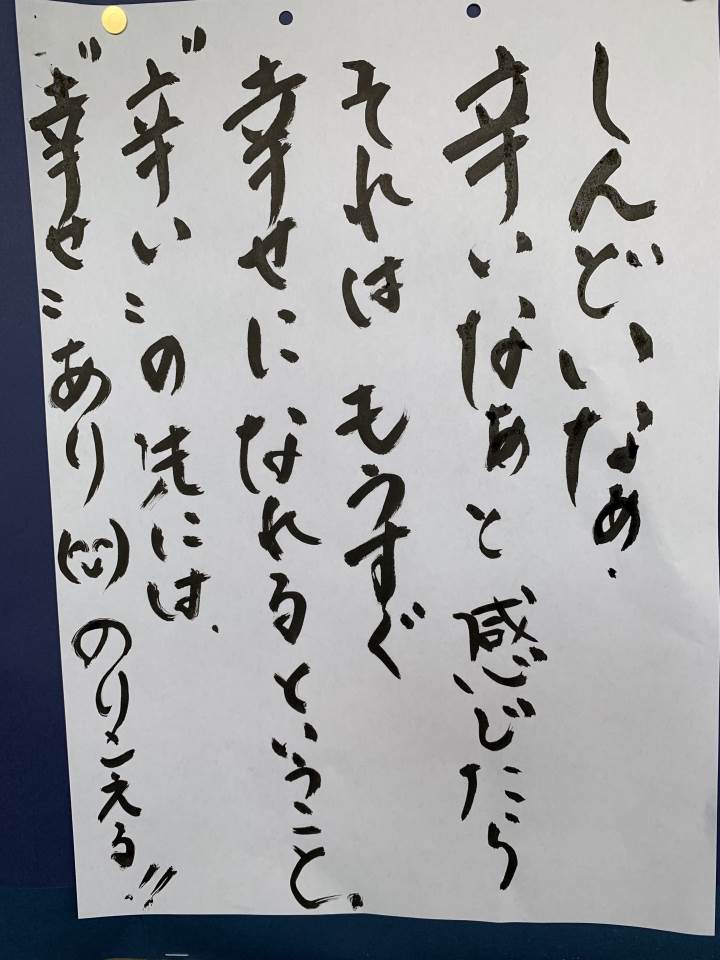 しんどいなぁ.
辛いなぁと感じたら
それは もうすぐ
幸せになれるということ.
"辛い"の先には.
"幸せ"あり(^‿^)のりこえる!!